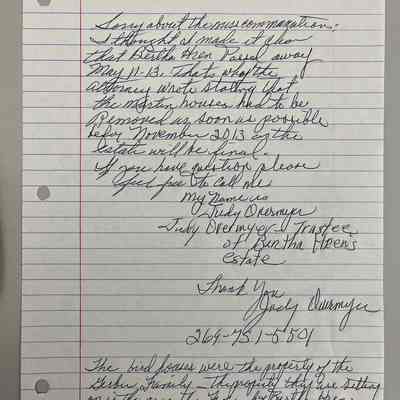 Sorry about the miss commanation:
I thought I made it clear
that Bertha Heen Passed away
May 11-13. That's why the
attorney wrote stating that
the martin houses had to be
Removed as soon as possible
before November 2013 as the
estate will be final.
If you have question please
feel free to call me
My name is
Judy Overmyer
Judy Overmyer - Trustee
of Bertha Heen's
Estate
Thank You
Judy Overmyer
269-751-5501
The bird houses were the property of the
Gerber Family - The property they are sitting